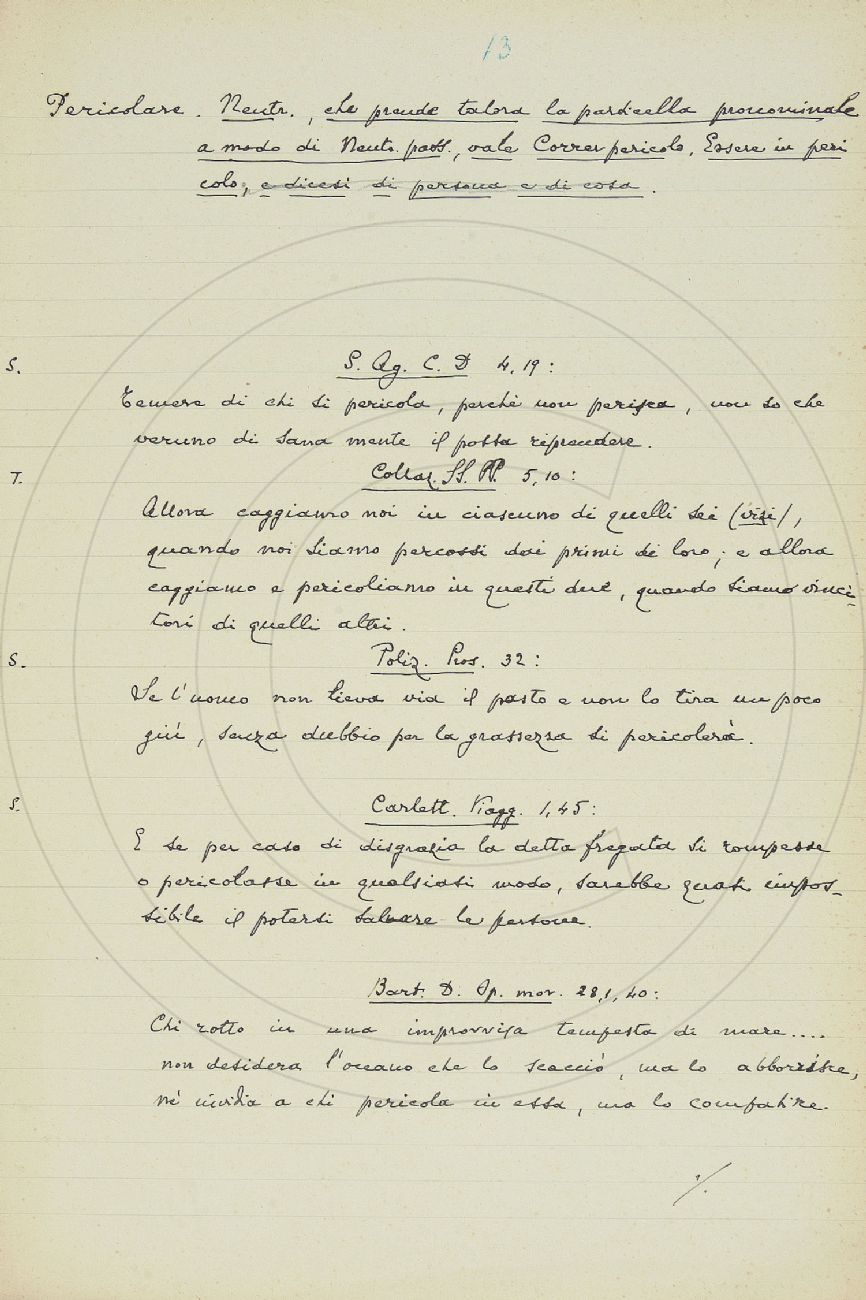 13
Pericolare. Neutr., che prende talora la particella pronominale
a modo di Neutr. pass., vale Correr pericolo, Essere in peri
colo; e dicesi di persona e di cosa.
S. S. Ag. C. D 4, 19:
Temere di chi si pericola, perchè non perisca, non so che
veruno di sana mente il possa riprendere.
T. Collaz. SS. PP. 5, 10:
Allora caggiamo noi in ciascuno di quelli sei (vizi),
quando noi siamo percossi dai primi di loro; e allora
caggiamo e pericoliamo in questi due, quando siamo vinci-
tori di quelli altri.
S. Poliz. Pros. 32:
Se l'uomo non lieva via il pasto e non lo tira un poco
giù, senza dubbio per la grassezza si pericolerà.
S. Carlett. Viagg. 1, 45:
E se per caso di disgrazia la detta fregata si rompesse
o pericolasse in qualsiasi modo, sarebbe quasi impos-
sibile il potersi salvare le persone.
Bart. D. Op. mor. 28, 1, 40:
Chi rotto in una improvvisa tempesta di mare....
non desidera l'oceano che lo scacciò, ma lo abborrisce,
nè invidia a chi pericola in essa, ma lo compatisce.
%.